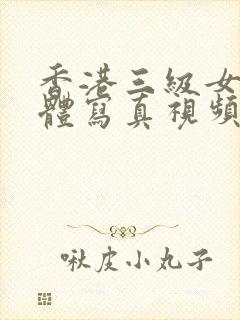 香港三級女
體寫真視頻
啾皮小丸子